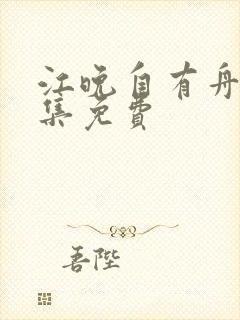 江晚自有舟
集免费
吾陛